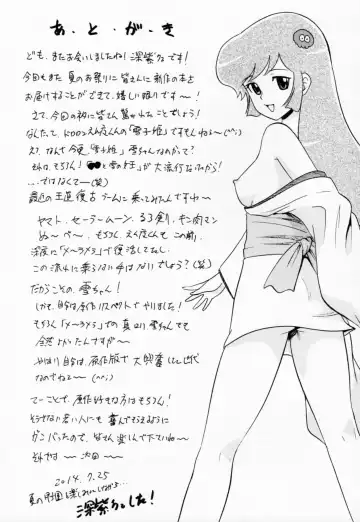 あ・と・が・き
ども、またお会いしましたね! 深紫です!
今回もまた夏のお祭りに皆さんに新作の本を
お届けすることができて、嬉しい限りです〜!
さて、今回の初に皆さん驚かれたことでしょう!
なんたって、ドロロンえん魔くんの「雪子姫」ですもんね〜(^^;)
え? なんで今更「雪子姫」雪ちゃんなのかって?
それは、もちろん! ●●と雪の女王が大流行な
…ではなくて〜(笑)
最近の王道復古ブームに乗ってみたんですわ〜
ヤマト、セーラームーン、るろ剣、キン肉マン
ぬ〜べ〜、もちろん、えん魔くんもこの前、
深夜に「メ〜ラメラ」で復活してたし、
この流れに乗らない手はないでしょう?(笑)
だからこその、雪ちゃん!
しかも、自分は原作リスペクトでやりました!
もちろん「メ〜ラメラ」での真っ 雪ちゃんでも
全然よかったんですが〜
やはり自分は、原作版で大興奮した世代
なのでね〜(^^;)
てことで、原作好きな方はもちろん!
そうでない若い人にも喜んでもらえるように
ガンバったので、皆さん楽しんで下さいね〜
それでは〜 次回〜
2014.7.25
夏の甲子園を楽しみにしながら…
深紫でした!